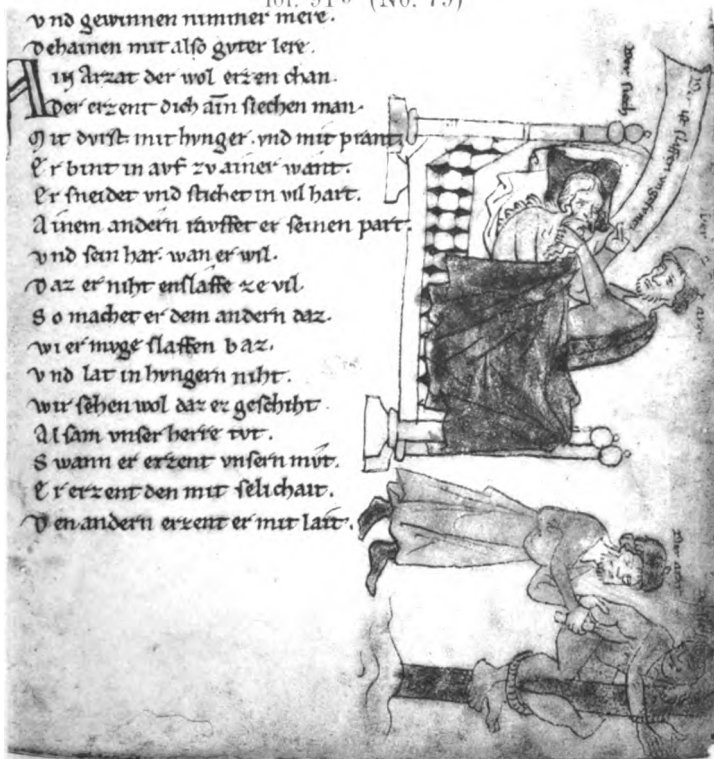 fol. 91 (No. 75)
vnd gewinnen nimmer mere.
dehainen mit also gvter lere.
Ain Arzat der wol erzen chan.
Der erzent dich ain siechen man.
Mit dvrst. mit hvnger. vnd mit prant.
Er bint in avf zv ainer want.
Er sneidet vnd stichet in vil hart.
Ainem andern ravffet er seinen part.
vnd sein har. wan er wil.
Daz er niht enslaffe ze vil.
So machet er dem andern daz.
wi er mvge slaffen baz.
vnd lat in hvngern niht.
wir sehen wol daz ez geschiht
Alsam vnser herre tvt.
Swann er erzent vnsern mvt.
Er erzent den mit selichait.
Den andern erzent er mit lait.
Der siech
slaffen
Der arzt